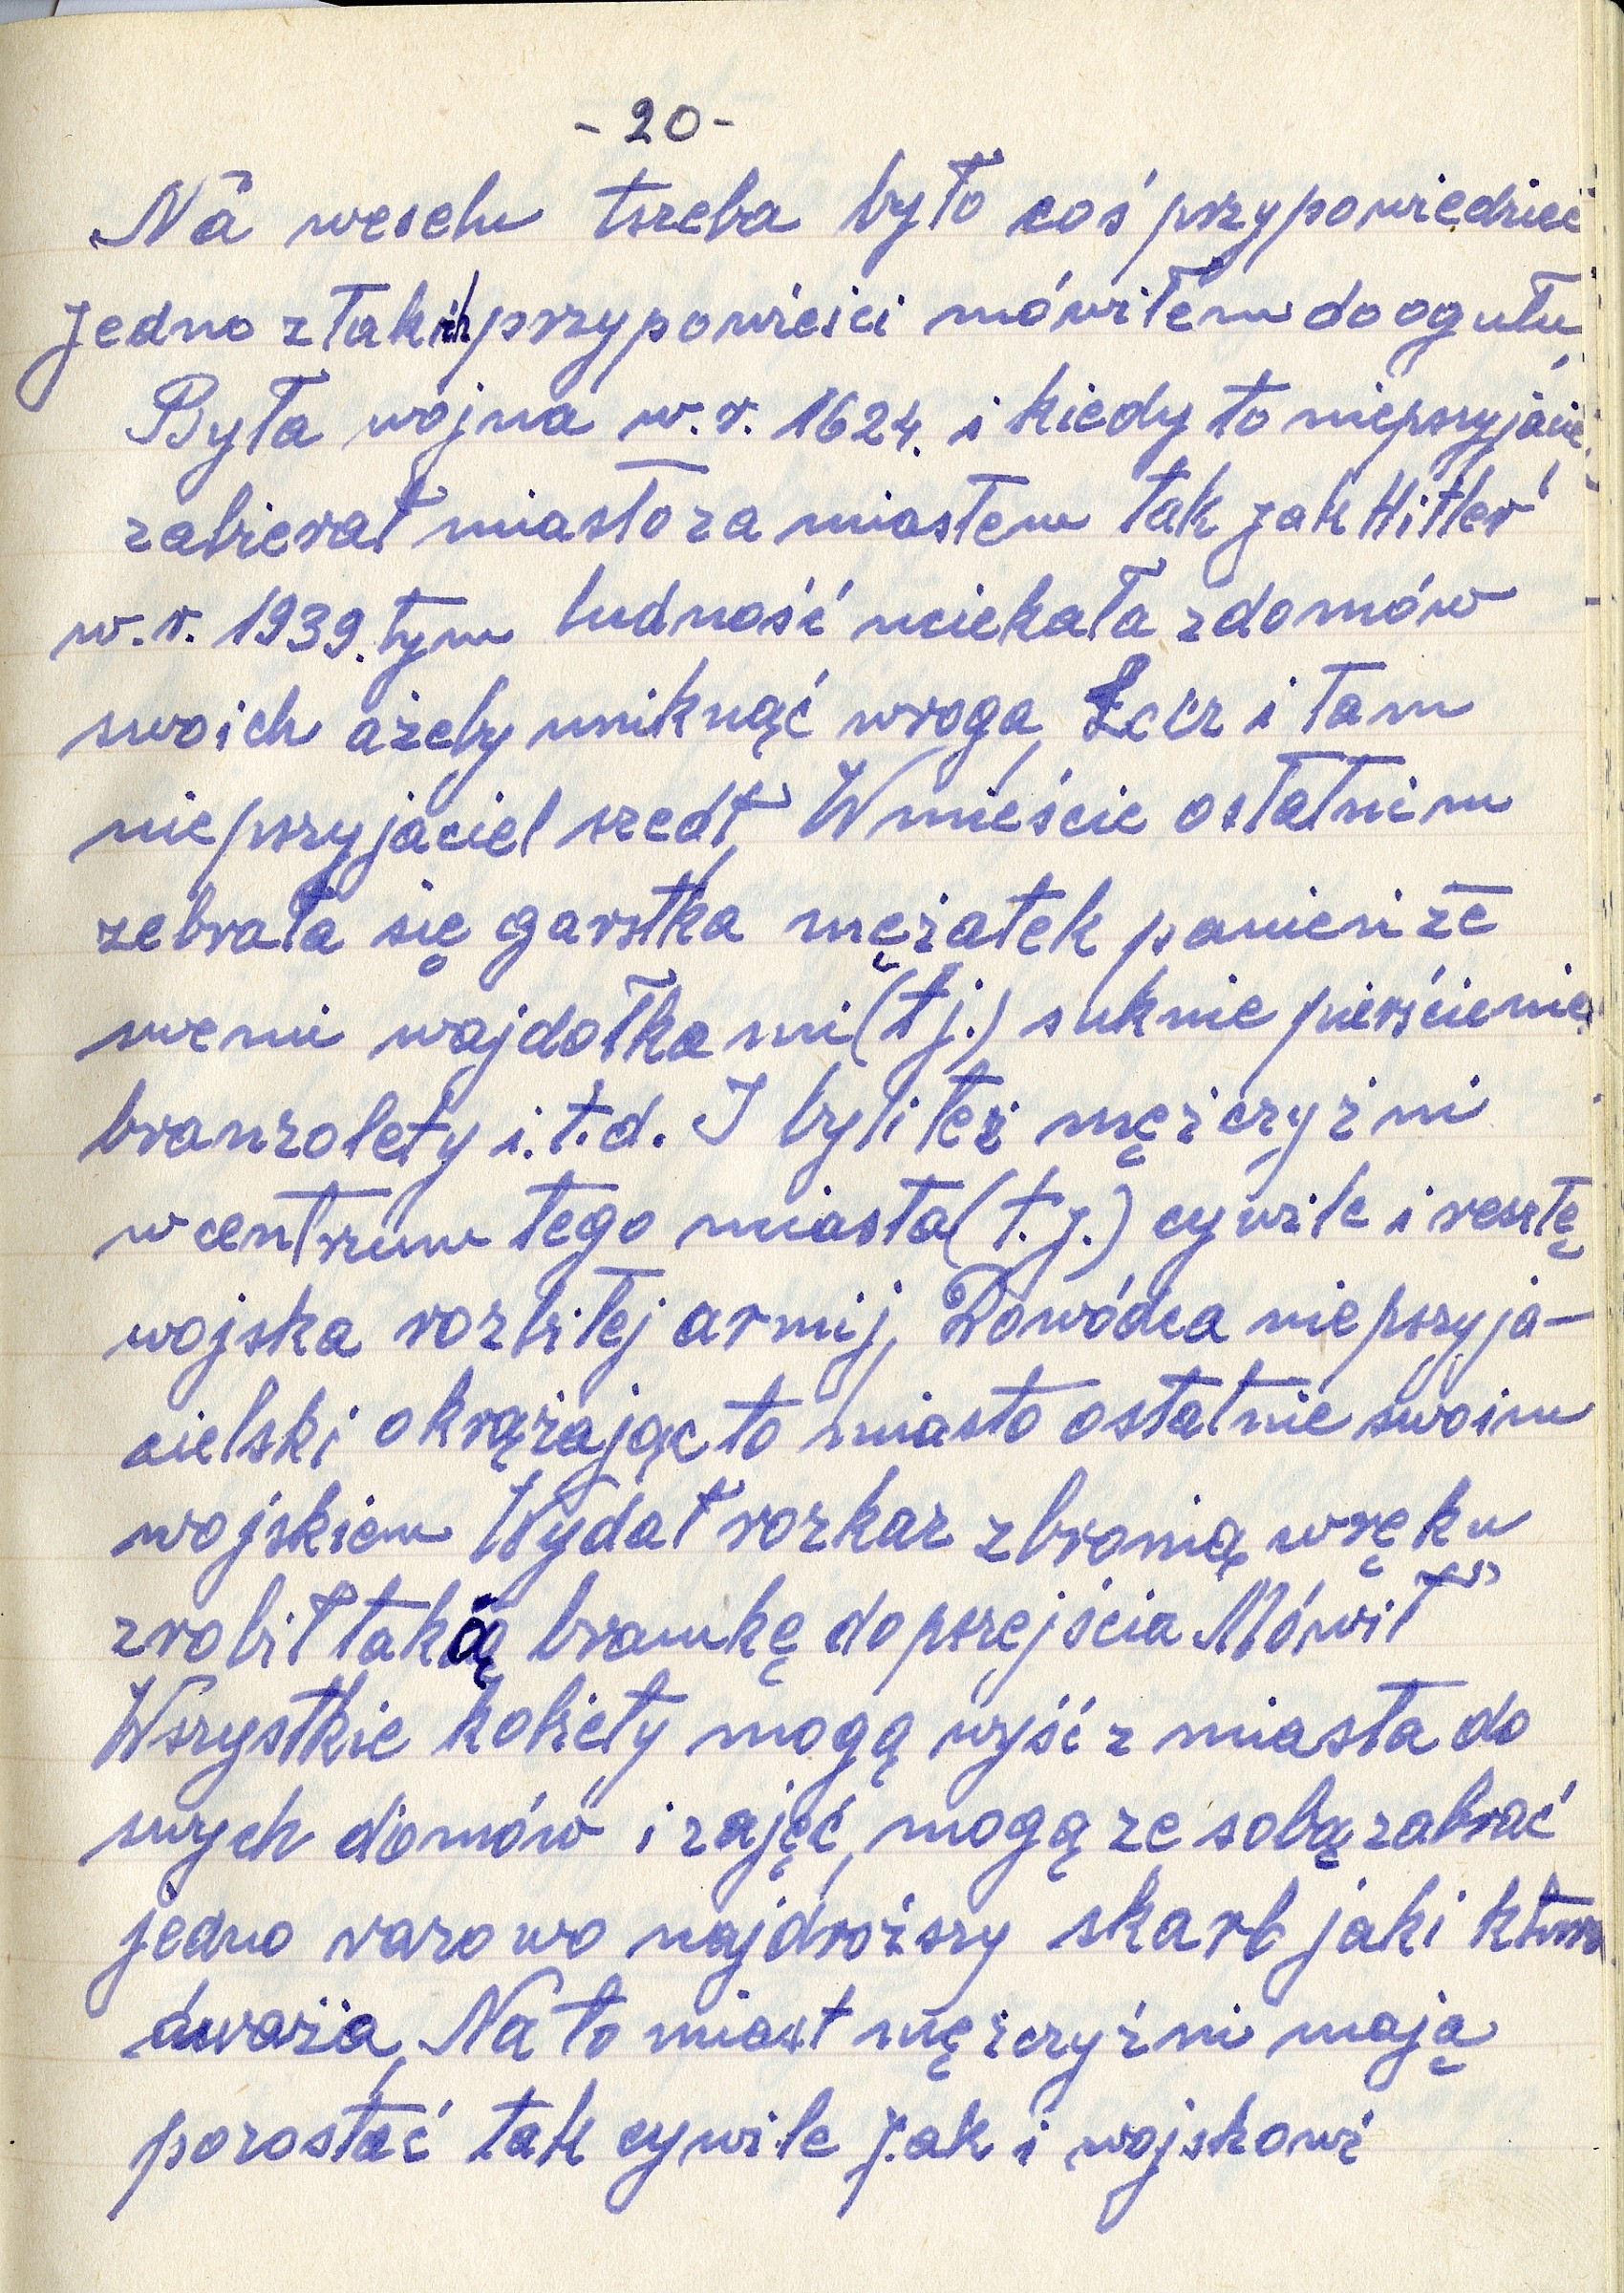 - 20 -
Na weselu trzeba było coś przypowiedzieć
jedno z takich przypowieści mówiłem do ogułu,
Była wojna w.r. 1624. i kiedy to nieprzyjaciel
zabierał miasto za miastem tak jak Hitler
w.r. 1939. tym ludność uciekała z domów
swoich ażeby uniknąć wroga, Lecz i tam
nieprzyjaciel szedł, W mieście ostatnim
zebrała się garstka mężatek panien i ze
swemi wajdołkami (tj.) suknie pierścienie,
branzolety i.t.d. I byli też mężczyźni
w centrum tego miasta (t.j.) cywile i resztę
wojska rozbitej armij, Dowódca nieprzyja-
cielski okrążając to miasto ostatnie swoim
wojskiem Wydał rozkaz z bronią w ręku
zrobił taką bramkę do przejścia Mówił"
Wszystkie kobiety mogą wyść z miasta do
swych domów i zajęć, mogą ze sobą zabrać
jedno razowo najdroższy skarb jaki
uważa, Na to miast mężczyźni mają
pozostać tak cywile jak i wojskowi